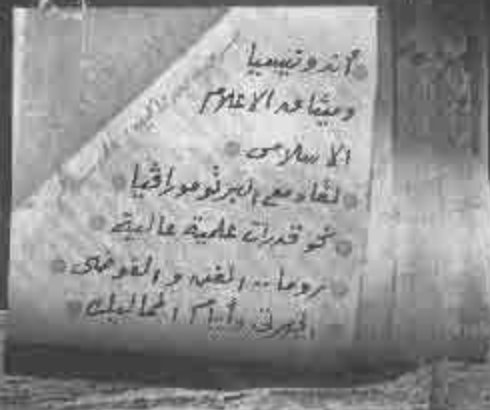 أندونيسيا
وميثاق الاعلام
الاسلامى
لقاء مع البرنوموراقيا
نحو قدرات علمية عالية
روما .. الفن والفوضى
الجبرتى وأيام المماليك